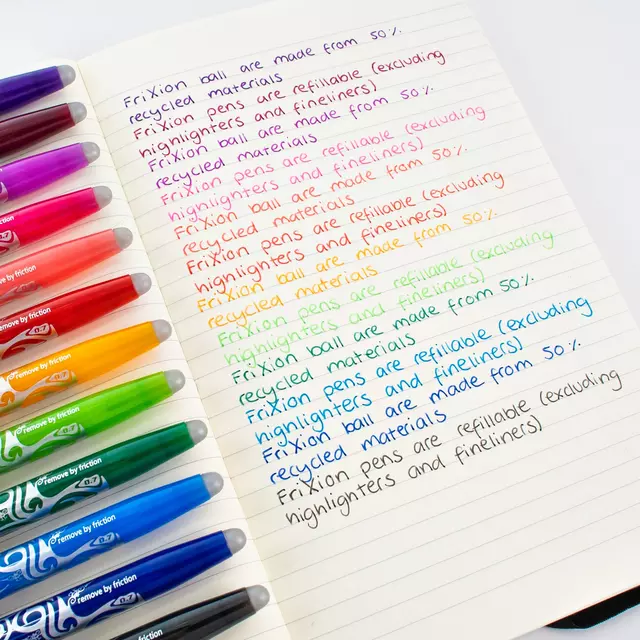 FriXion ball are made from 50%
recycled materials
FriXion pens are refillable (excluding
highlighters and fineliners)
FriXion ball are made from 50%
recycled materials
FriXion pens are refillable (excluding
highlighters and fineliners)
FriXion ball are made from 50%
recycled materials
FriXion pens are refillable (excluding
highlighters and fineliners)
FriXion ball are made from 50%
recycled materials
FriXion pens are refillable (excluding
highlighters and fineliners)
FriXion ball are made from 50%
recycled materials
FriXion pens are refillable (excluding
highlighters and fineliners)
FriXion ball are made from 50%
recycled materials
FriXion pens are refillable (excluding
highlighters and fineliners)
remove by friction
remove by friction
0.7
remove by friction
remove by friction
0.7
remove by friction
0.7
remove by friction
0.7
remove by friction
0.7
remove by friction